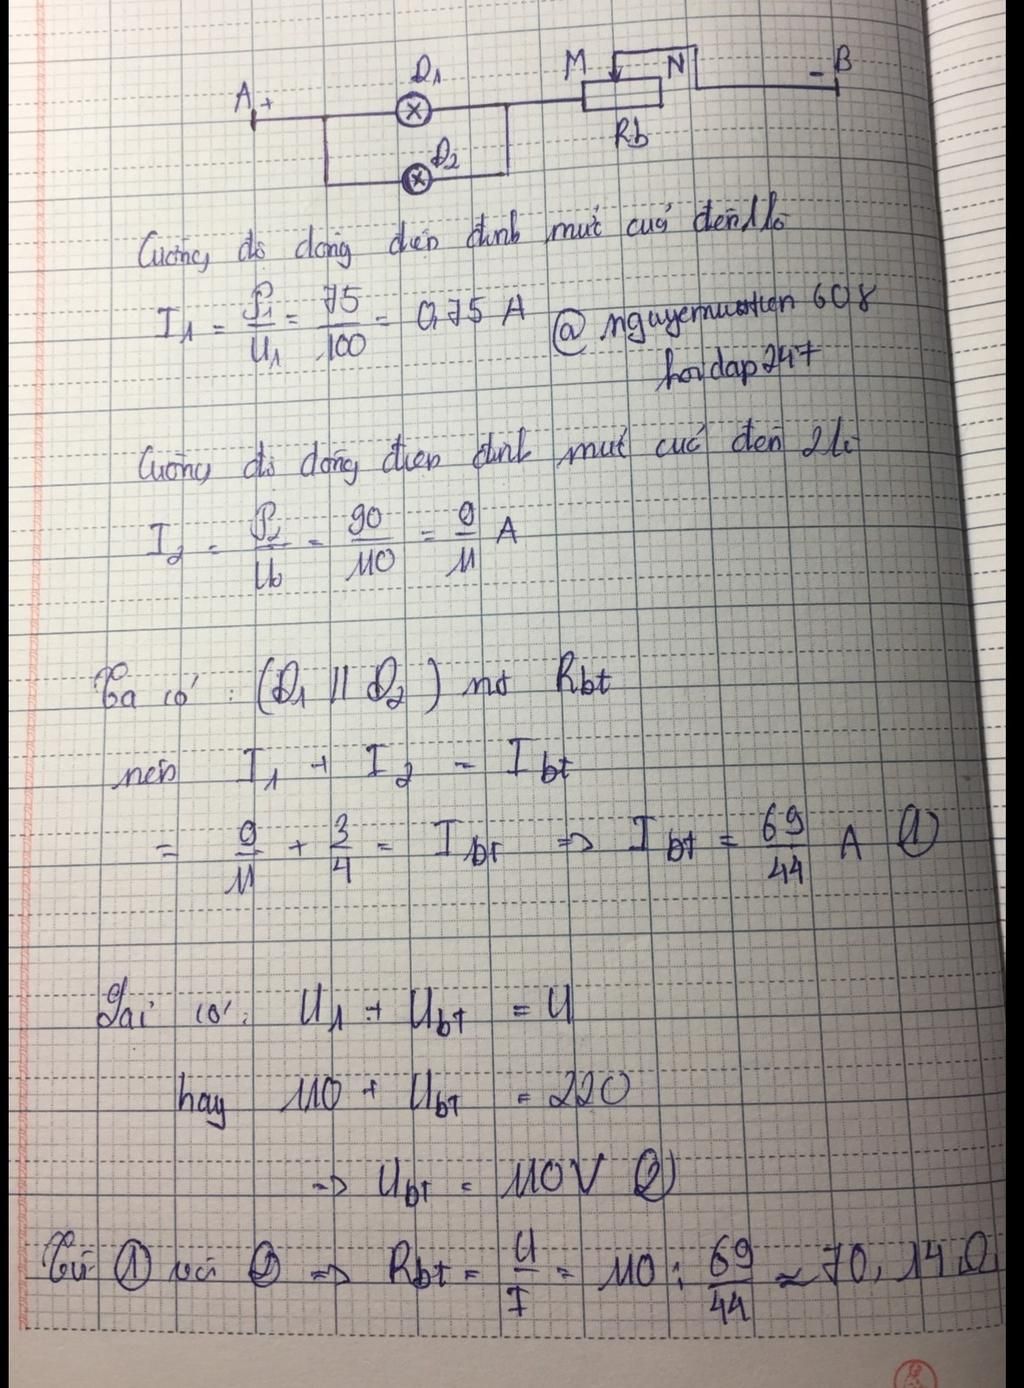 A + Đ1 M N - B
Đ2 Rb
Cường độ dòng điện định mức của đèn 1 là
I1 = P1/U1 = 75/100 = 0,75 A @nguyenvantien608
hoidap247
Cường độ dòng điện định mức của đèn 2 là
I2 = P2/U2 = 90/110 = 9/11 A
Ta có : (Đ1 // Đ2) nt Rbt
nên I1 + I2 = Ibt
= 9/11 + 3/4 = Ibt => Ibt = 69/44 A (1)
Lại có: U1 + Ubt = U
hay 110 + Ubt = 220
=> Ubt = 110V (2)
Từ (1) và (2) => Rbt = U/I = 110 : 69/44 ≈ 70,14 Ω